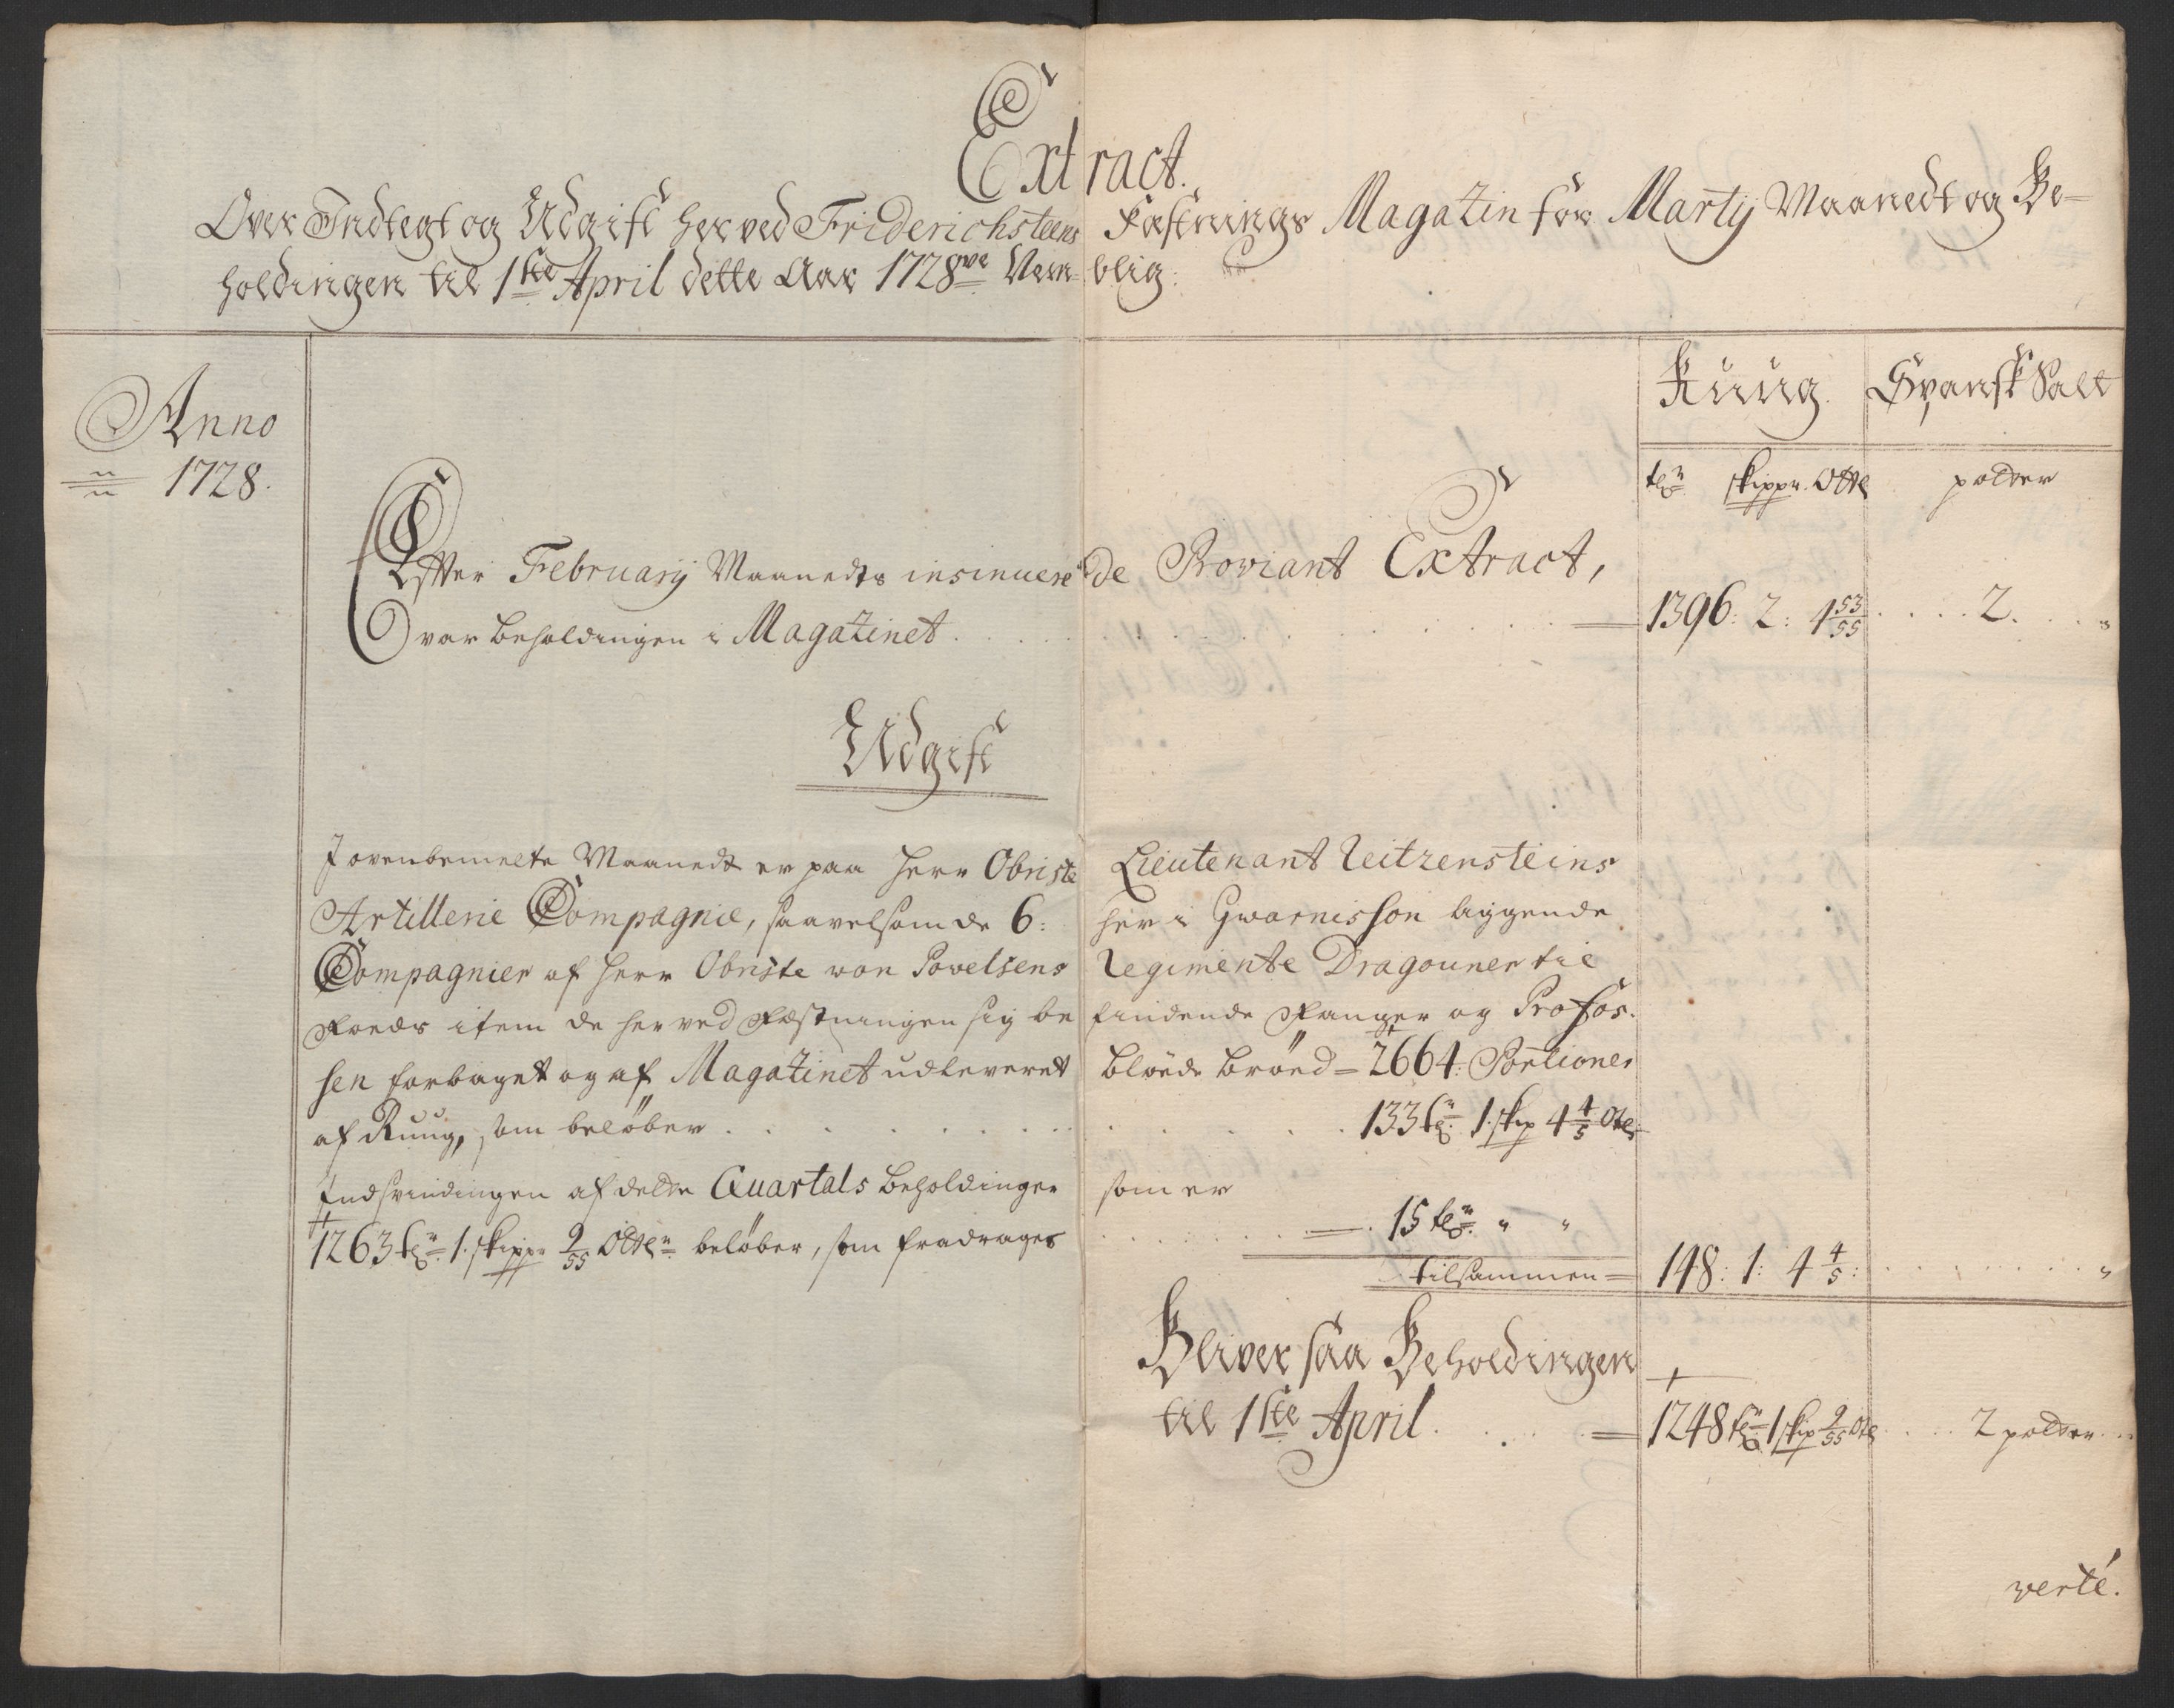 Extract.
Over Indtegt og Udgift her ved Friderichsteens Fæstnings Magazin for Martij Maanedt og Be-
holdingen til 1ste April dette Aar 1728ve Nem- blig:
Anno
1728.
Ruug. Spansk Salt
tdr skippr. Ottl polder
Effter Februarij Maanedts insinuerede Proviant Extract,
var beholdingen i Magazinet . . . . = 1396: 2: 4 53/55 . . . . 2. . . "
Udgift
I ovenbemelte Maanedt er paa Herr Obriste Lieutenant Reitzensteins
Artillerie Compagnie, saavelsom de 6: her i Gwarnisson liggende
Compagnier af Herr Obriste von Povelsens Regimente Dragouner til
Foeds item de herved Fæstningen sig be findende Fanger og Profos.
sen forbaget og af Magazinet udleveret bløde brød = 2664: Portioner
af Ruug, som beløber . . . . . . . 133 tr 1. skip 4 4/5 Otl
Indsvindingen af dette Quartals beholdinger som er
1263 tr 1. skippr 9/55 Ottl beløber, som fradrages . . . . = 15 tdr " "
tilsammen = 148: 1: 4 4/5: . . . . "
Bliver saa Beholdingen
til 1ste April . . . = 1248 tr 1 skip 9/55 Otl . . . . 2 polder . .
verté.